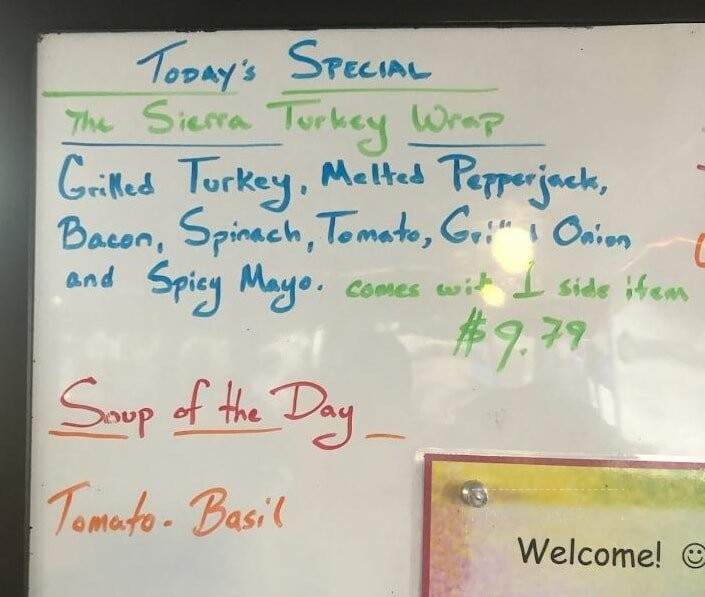 Today's Special
The Sierra Turkey Wrap
Grilled Turkey, Melted Pepperjack,
Bacon, Spinach, Tomato, Grilled Onion
and Spicy Mayo. comes with 1 side item
$9.79
Soup of the Day
Tomato-Basil
Welcome! ☺